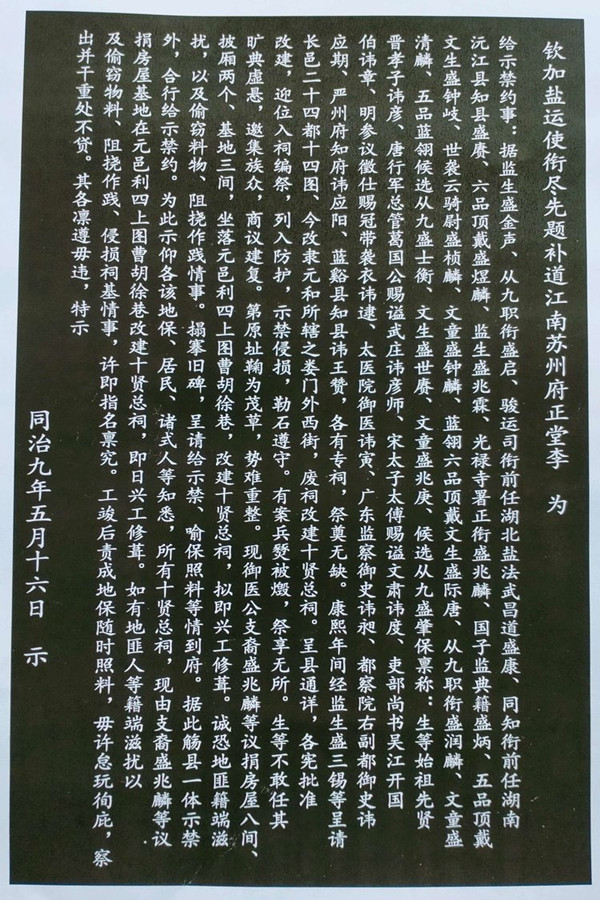 钦加盐运使衔尽先题补道江南苏州府正堂李 为
给示禁约事：据监生盛金声、从九职衔盛启、骏运司衔前任湖北盐法武昌道盛康、同知衔前任湖南
沅江县知县盛赓、六品顶戴盛煜麟、监生盛兆霖、光禄寺署正衔盛兆麟、国子监典籍盛炳、五品顶戴
文生盛钟岐、世袭云骑尉盛桢麟、文童盛钟麟、蓝翎六品顶戴文生盛际唐、从九职衔盛润麟、文童盛
清麟、五品蓝翎候选从九盛士衡、文生盛世赓、文童盛兆庚、候选从九盛肇保禀称：生等始祖先贤
晋孝子讳彦、唐行军总管葛国公赐谥武庄讳彦师、宋太子太傅赐谥文肃讳度、吏部尚书吴江开国
伯讳章、明参议徵仕赐冠带袭衣讳逮、太医院御医讳寅、广东监察御史讳昶、都察院右副都御史讳
应期、严州府知府讳应阳、蓝谿县知县讳王赞，各有专祠，祭奠无缺。康熙年间经监生盛三锡等呈请
长邑二十四都十四图、今改隶元和所辖之娄门外西街，废祠改建十贤总祠。呈县通详，各宪批准
改建，迎位入祠编祭，列入防护，示禁侵损，勒石遵守。有案兵燹被燬，祭享无所。生等不敢任其
旷典虚悬，邀集族众，商议建复。第原址鞠为茂草，势难重整。现御医公支裔盛兆麟等议捐房屋八间、
披厢两个、基地三间，坐落元邑利四上图曹胡徐巷，改建十贤总祠，拟即兴工修葺。诚恐地匪藉端滋
扰，以及偷窃料物、阻挠作践情事。搨摹旧碑，呈请给示禁、喻保照料等情到府。据此觞县一体示禁
外，合行给示禁约。为此示仰各该地保、居民、诸式人等知悉，所有十贤总祠，现由支裔盛兆麟等议
捐房屋基地在元邑利四上图曹胡徐巷改建十贤总祠，即日兴工修葺。如有地匪人等籍端滋扰以
及偷窃物料、阻挠作践、侵损祠基情事，许即指名禀究。工竣后责成地保随时照料，毋许怠玩徇庇，察
出并干重处不贷。其各凛遵毋违，特示
同治九年五月十六日 示